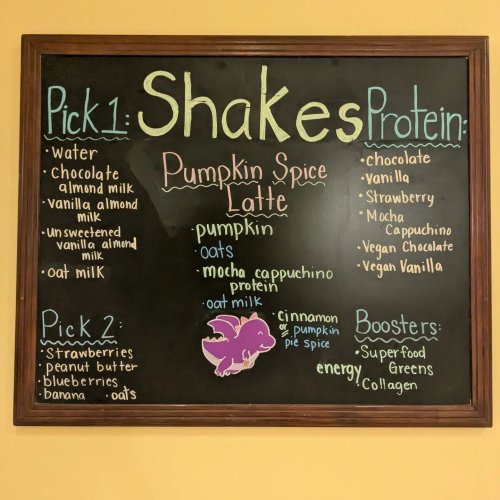 Shakes
Pick 1:
· Water
· Chocolate
almond milk
· vanilla almond
milk
· unsweetened
vanilla almond
milk
· oat milk
Pick 2:
· Strawberries
· peanut butter
· blueberries
· banana · oats
Pumpkin Spice
Latte
· pumpkin
· oats
· mocha cappuchino
protein
· oat milk
· cinnamon
or pumpkin
pie spice
Protein:
· chocolate
· Vanilla
· Strawberry
· Mocha
Cappuchino
· Vegan Chocolate
· Vegan Vanilla
Boosters:
· Superfood
Greens
energy
Collagen